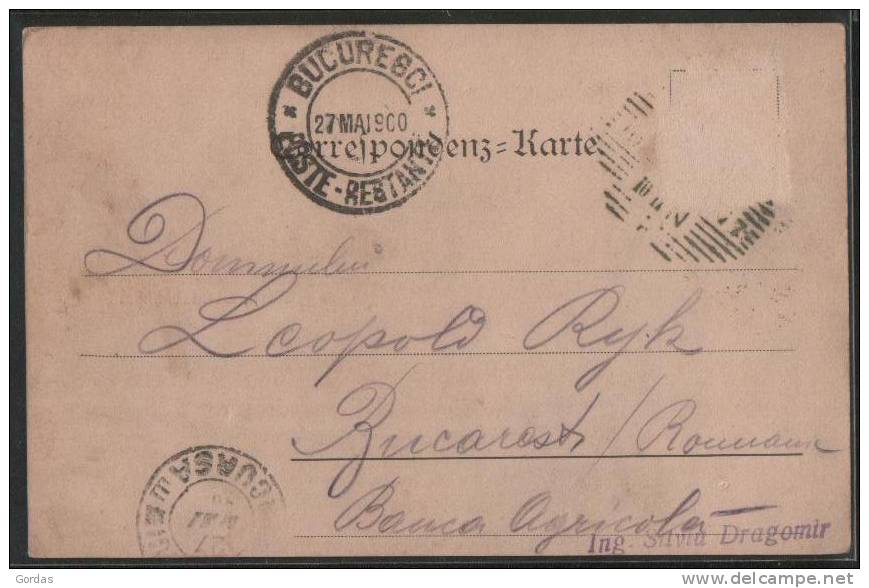 BUCURESCI
27 MAI 900
POSTE-RESTANTU
Correspondenz-Karte
Domnului
Leopold Ryk
Bucarest / Roumanie
Banca Agricolă
Ing. Silviu Dragomir
Gordas
www.delcampe.net